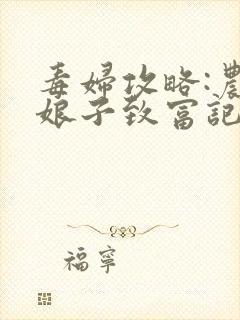 毒婦攻略:農
娘子致富記
福寧